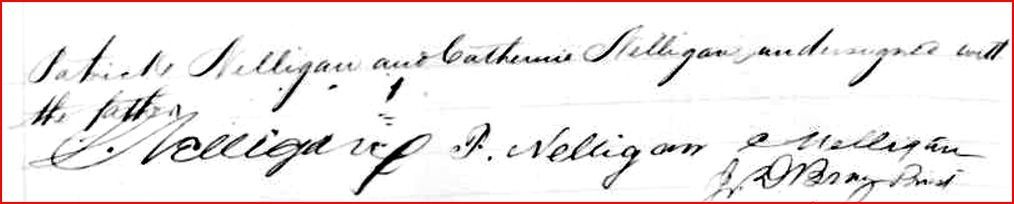 Patrick Nelligan and Catherine Nelligan undersigned with
the father
Nelligan P. Nelligan C Nelligan
Priest